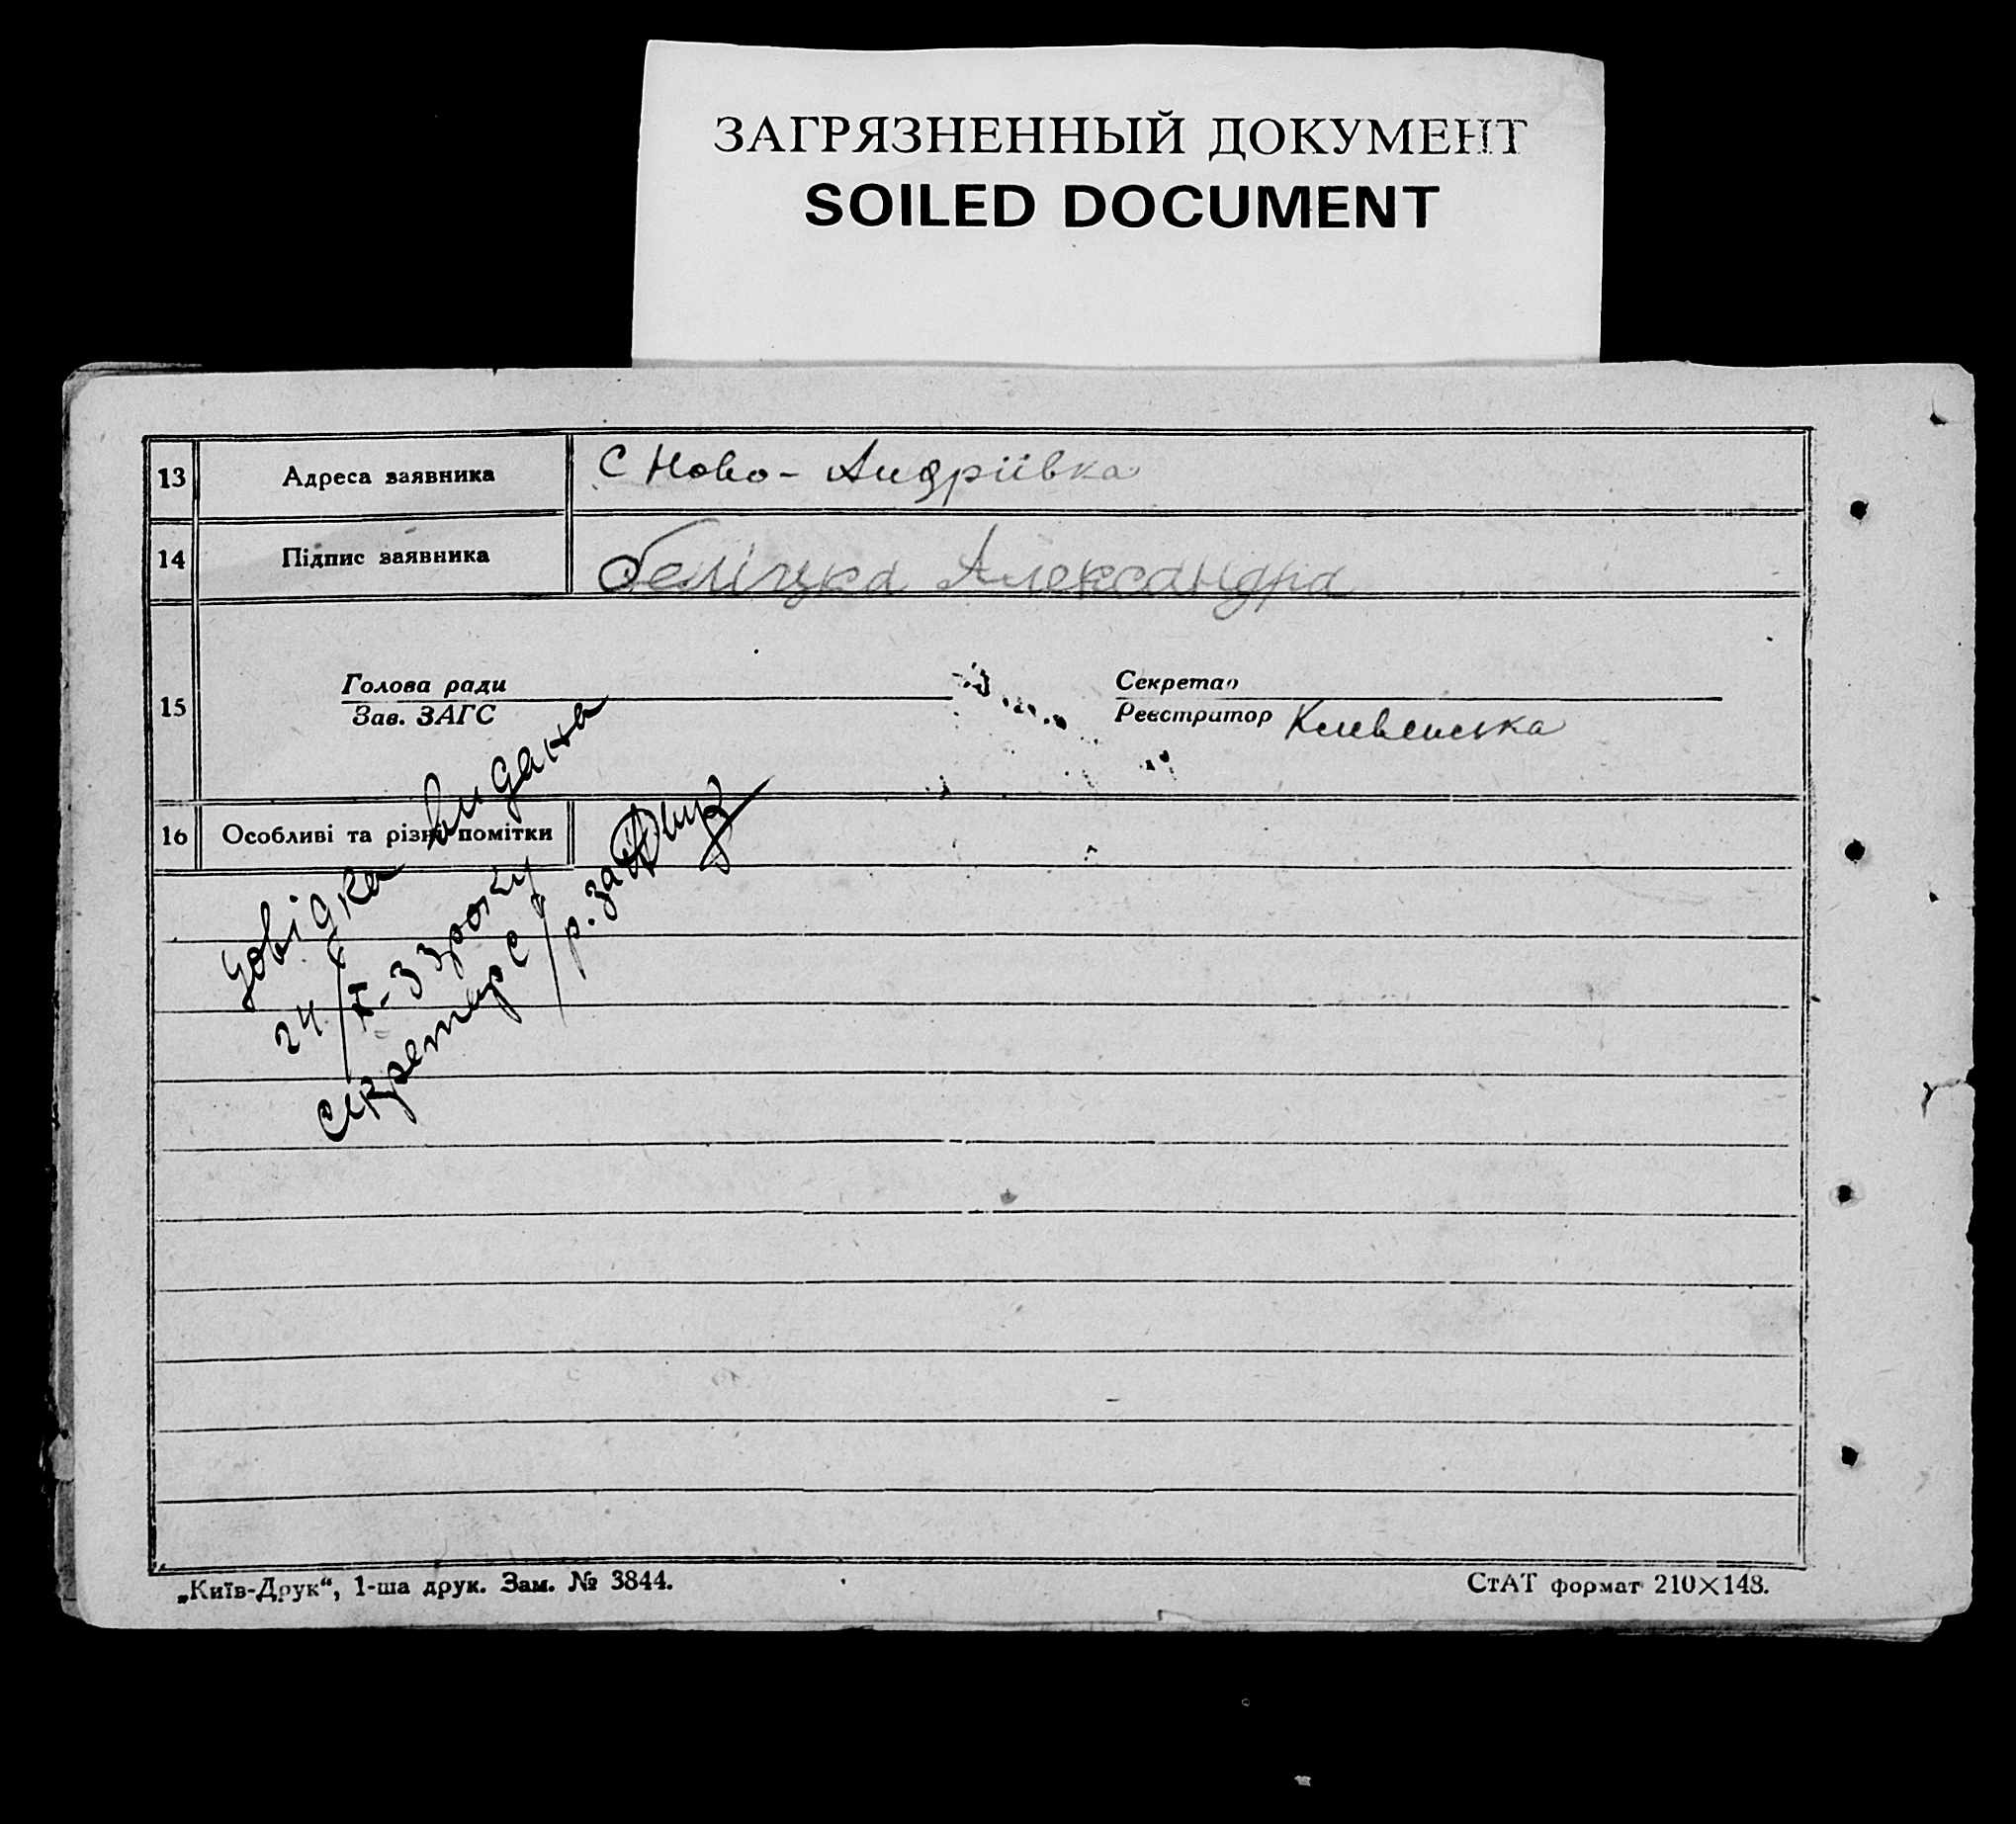 ЗАГРЯЗНЕННЫЙ ДОКУМЕНТ
SOILED DOCUMENT
13 Адреса заявника С Ново-Андріївка
14 Підпис заявника беліцка Александра
15 Голова ради
Зав. ЗАГС
Секретар
Реєстратор
16 Особливі та різні помітки
довідка видана
24/X-33 року
секретар с/р.
„Київ-Друк“, 1-ша друк. Зам. № 3844.
СтАТ формат 210×148.